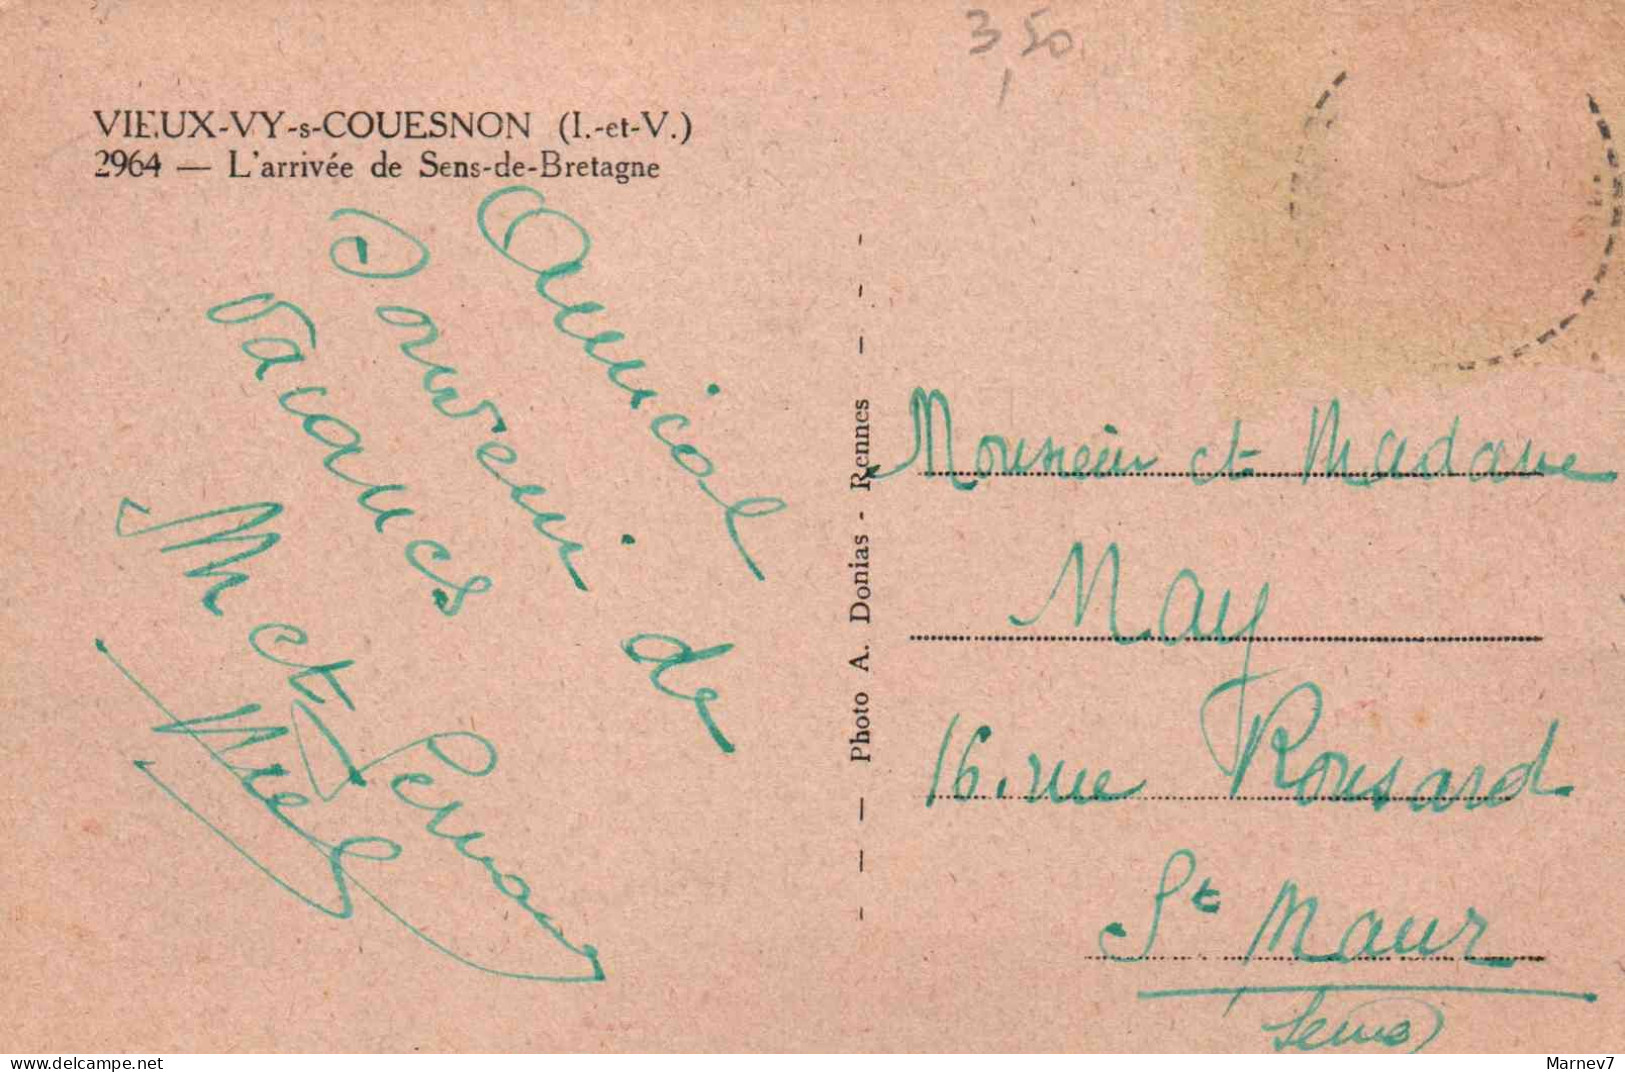 3,50
VIEUX-VY-s-COUESNON (I.-et-V.)
2964 — L'arrivée de Sens-de-Bretagne
Amical
Souvenir de
vacances
M et
Photo A. Donias - Rennes
Monsieur et Madame
May
16. rue Ronsard
St Maur
Seine
www.delcampe.net
Marnev7